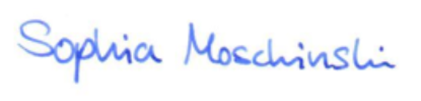 Sophia Moschinski